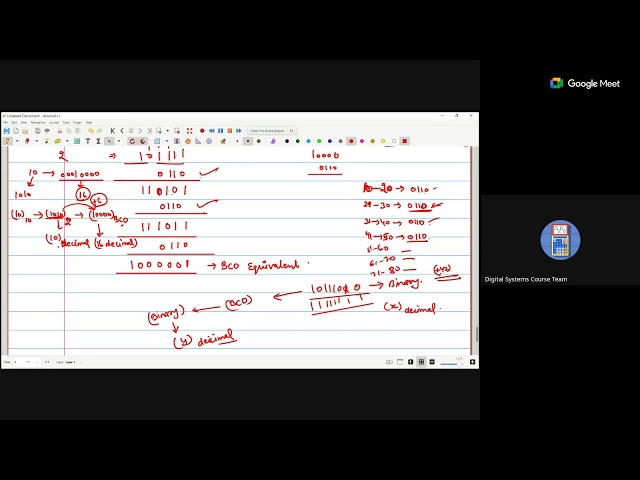 Google Meet
Digital Systems Course Team
Unsaved Document - Xournal++
File Edit View Navigation Journal Tools Plugin Help
2 ⇒ 101111
10 → 00010000
0110
1010
16
+6
110101
(10)10 → (1010)2 → (10000)BCD
0110
111011
(10) decimal (16 decimal)
0110
1000001 → BCD Equivalent.
10000
0110
10-20 → 0110
21-30 → 0110
31→40 → 0110
41→50 → 0110
51-60 —
61-70 —
71-80 —
→ Binary.
(Binary) ← (BCD) ←
(x) decimal.
(y) decimal
Layer 1